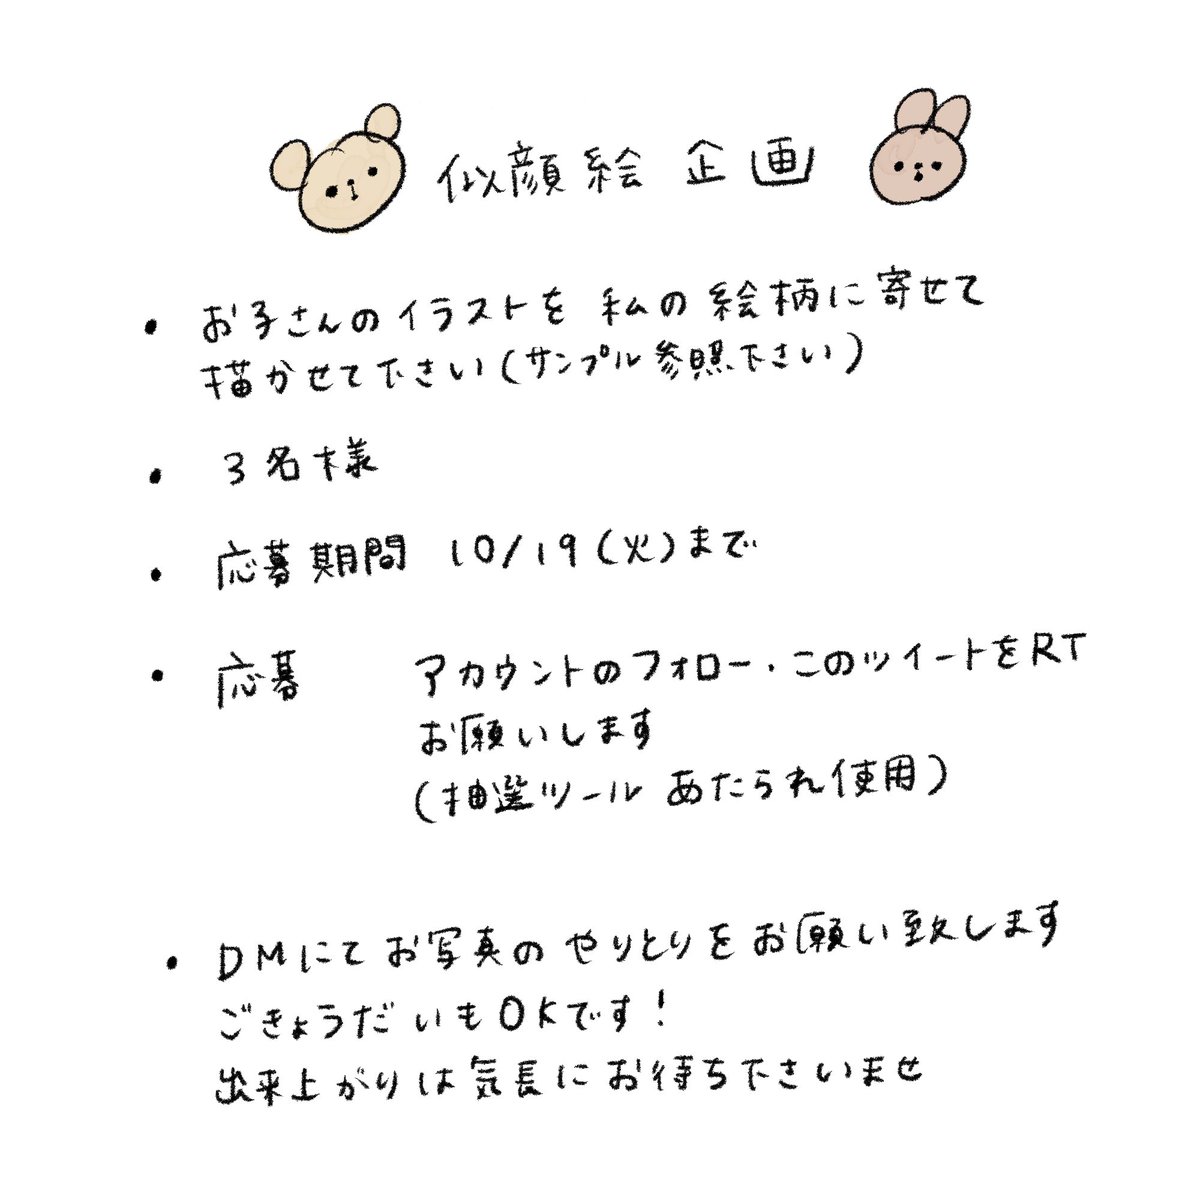 似顔絵 企画
・お子さんのイラストを 私の絵柄に寄せて
描かせて下さい(サンプル参照下さい)
・3名様
・応募期間 10/19(火)まで
・応募 アカウントのフォロー・このツイートをRT
お願いします
(抽選ツール あたられ使用)
・DMにてお写真のやりとりをお願い致します
ごきょうだいもOKです!
出来上がりは気長にお待ち下さいませ